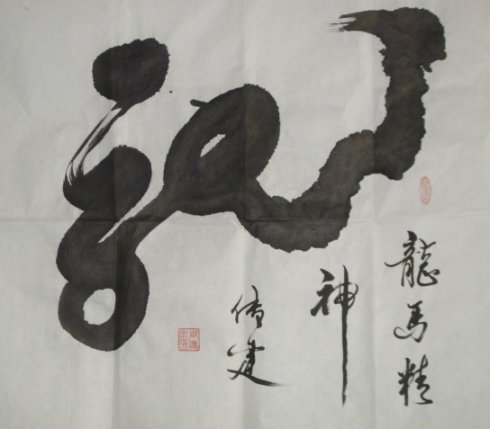 龍
龍馬精
神
建